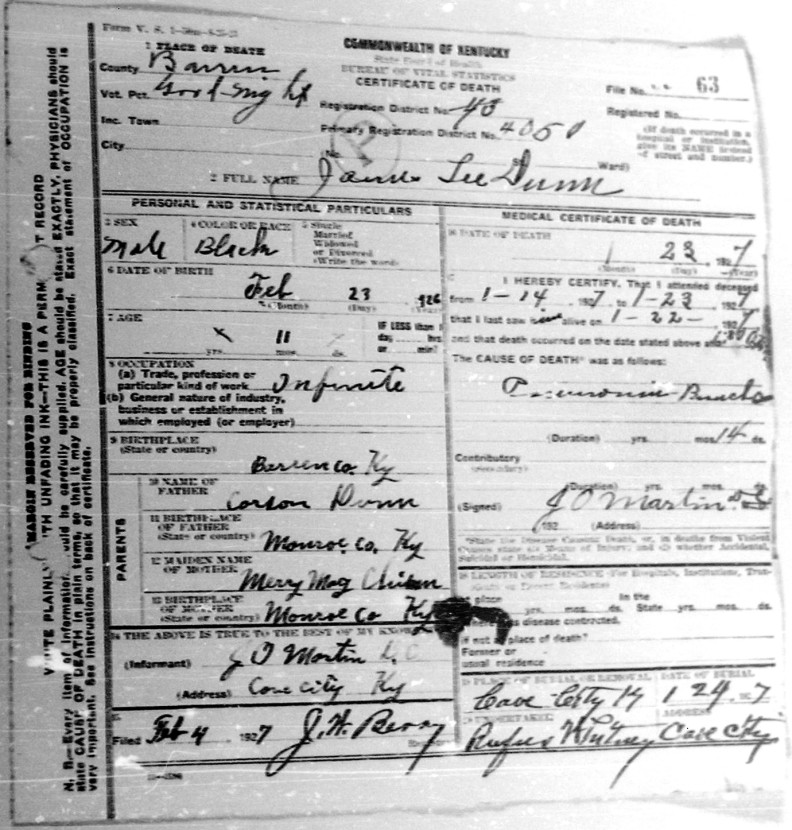 Form V. S.
COMMONWEALTH OF KENTUCKY
State Board of Health
BUREAU OF VITAL STATISTICS
CERTIFICATE OF DEATH
1 PLACE OF DEATH
County Barren
Vot. Pct. Goodnight
Inc. Town
City
File No. 63
Registered No.
Registration District No. 40
Primary Registration District No. 4050
(If death occurred in a
hospital or institution,
give its NAME instead
of street and number.)
Ward)
2 FULL NAME James Lee Dunn
PERSONAL AND STATISTICAL PARTICULARS
3 SEX
Male
4 COLOR OR RACE
Black
5 Single
Married
Widowed
or Divorced
(Write the word)
6 DATE OF BIRTH
Feb 23 , 926
(Month) (Day) (Year)
7 AGE
x 11
yrs. mos.
IF LESS than 1
day hrs.
or min?
8 OCCUPATION
(a) Trade, profession or
particular kind of work Infinite
(b) General nature of industry,
business or establishment in
which employed (or employer)
9 BIRTHPLACE
(State or country)
Barren co. Ky
PARENTS
10 NAME OF
FATHER
Corson Dunn
11 BIRTHPLACE
OF FATHER
(State or country)
Monroe Co. Ky
12 MAIDEN NAME
OF MOTHER
Merry Mag
13 BIRTHPLACE
OF MOTHER
(State or country)
Monroe Co Ky
14 THE ABOVE IS TRUE TO THE BEST OF MY
(Informant) J O Martin
(Address) Cave City Ky
15
Filed Feb 4 1927 J. W. Berry
MEDICAL CERTIFICATE OF DEATH
16 DATE OF DEATH
1 23 , 1927
(Month) (Day) (Year)
I HEREBY CERTIFY, That I attended deceased
from 1-14 1927, to 1-23 1927
that I last saw alive on 1-22- 1927
and that death occurred on the date stated above at
The CAUSE OF DEATH* was as follows:
(Duration) yrs. mos. 14 ds.
Contributory
(Secondary)
(Duration) yrs. mos. ds.
(Signed) J O Martin
192 (Address)
*State the Disease Causing Death, or, in deaths from Violent
Causes state (1) Means of Injury; and (2) whether Accidental,
Suicidal or Homicidal.
18 LENGTH OF RESIDENCE (For Hospitals, Institutions, Tran-
sients or Recent Residents)
place yrs. mos. ds. In the State yrs. mos. ds.
disease contracted,
if not place of death?
Former or
usual residence
19 PLACE OF BURIAL OR REMOVAL
Cave City Ky
DATE OF BURIAL
1 24 , 7
20 UNDERTAKER
ADDRESS
Rufus Witney Cave City
MARGIN RESERVED FOR BINDING
WRITE PLAINLY WITH UNFADING INK—THIS IS A PERM T RECORD
N. B.—Every item of information should be carefully supplied. AGE should be stated EXACTLY. PHYSICIANS should
state CAUSE OF DEATH in plain terms, so that it may be properly classified. Exact statement of OCCUPATION is
very important. See instructions on back of certificate.